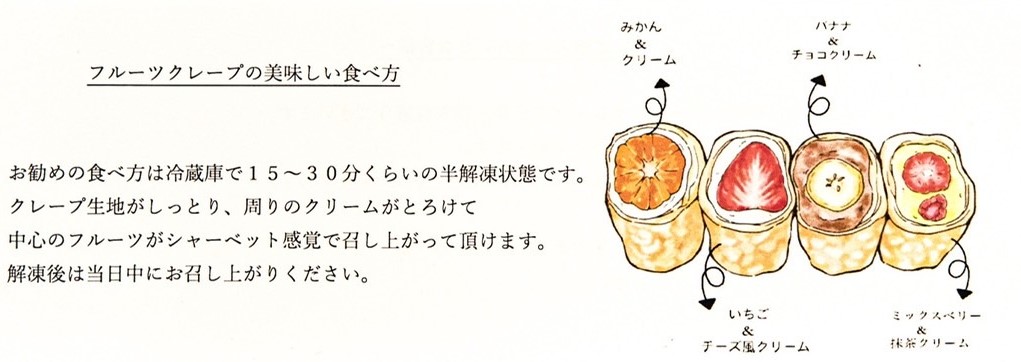 フルーツクレープの美味しい食べ方
お勧めの食べ方は冷蔵庫で１５～３０分くらいの半解凍状態です。
クレープ生地がしっとり、周りのクリームがとろけて
中心のフルーツがシャーベット感覚で召し上がって頂けます。
解凍後は当日中にお召し上がりください。
みかん
&
クリーム
バナナ
&
チョコクリーム
いちご
&
チーズ風クリーム
ミックスベリー
&
抹茶クリーム